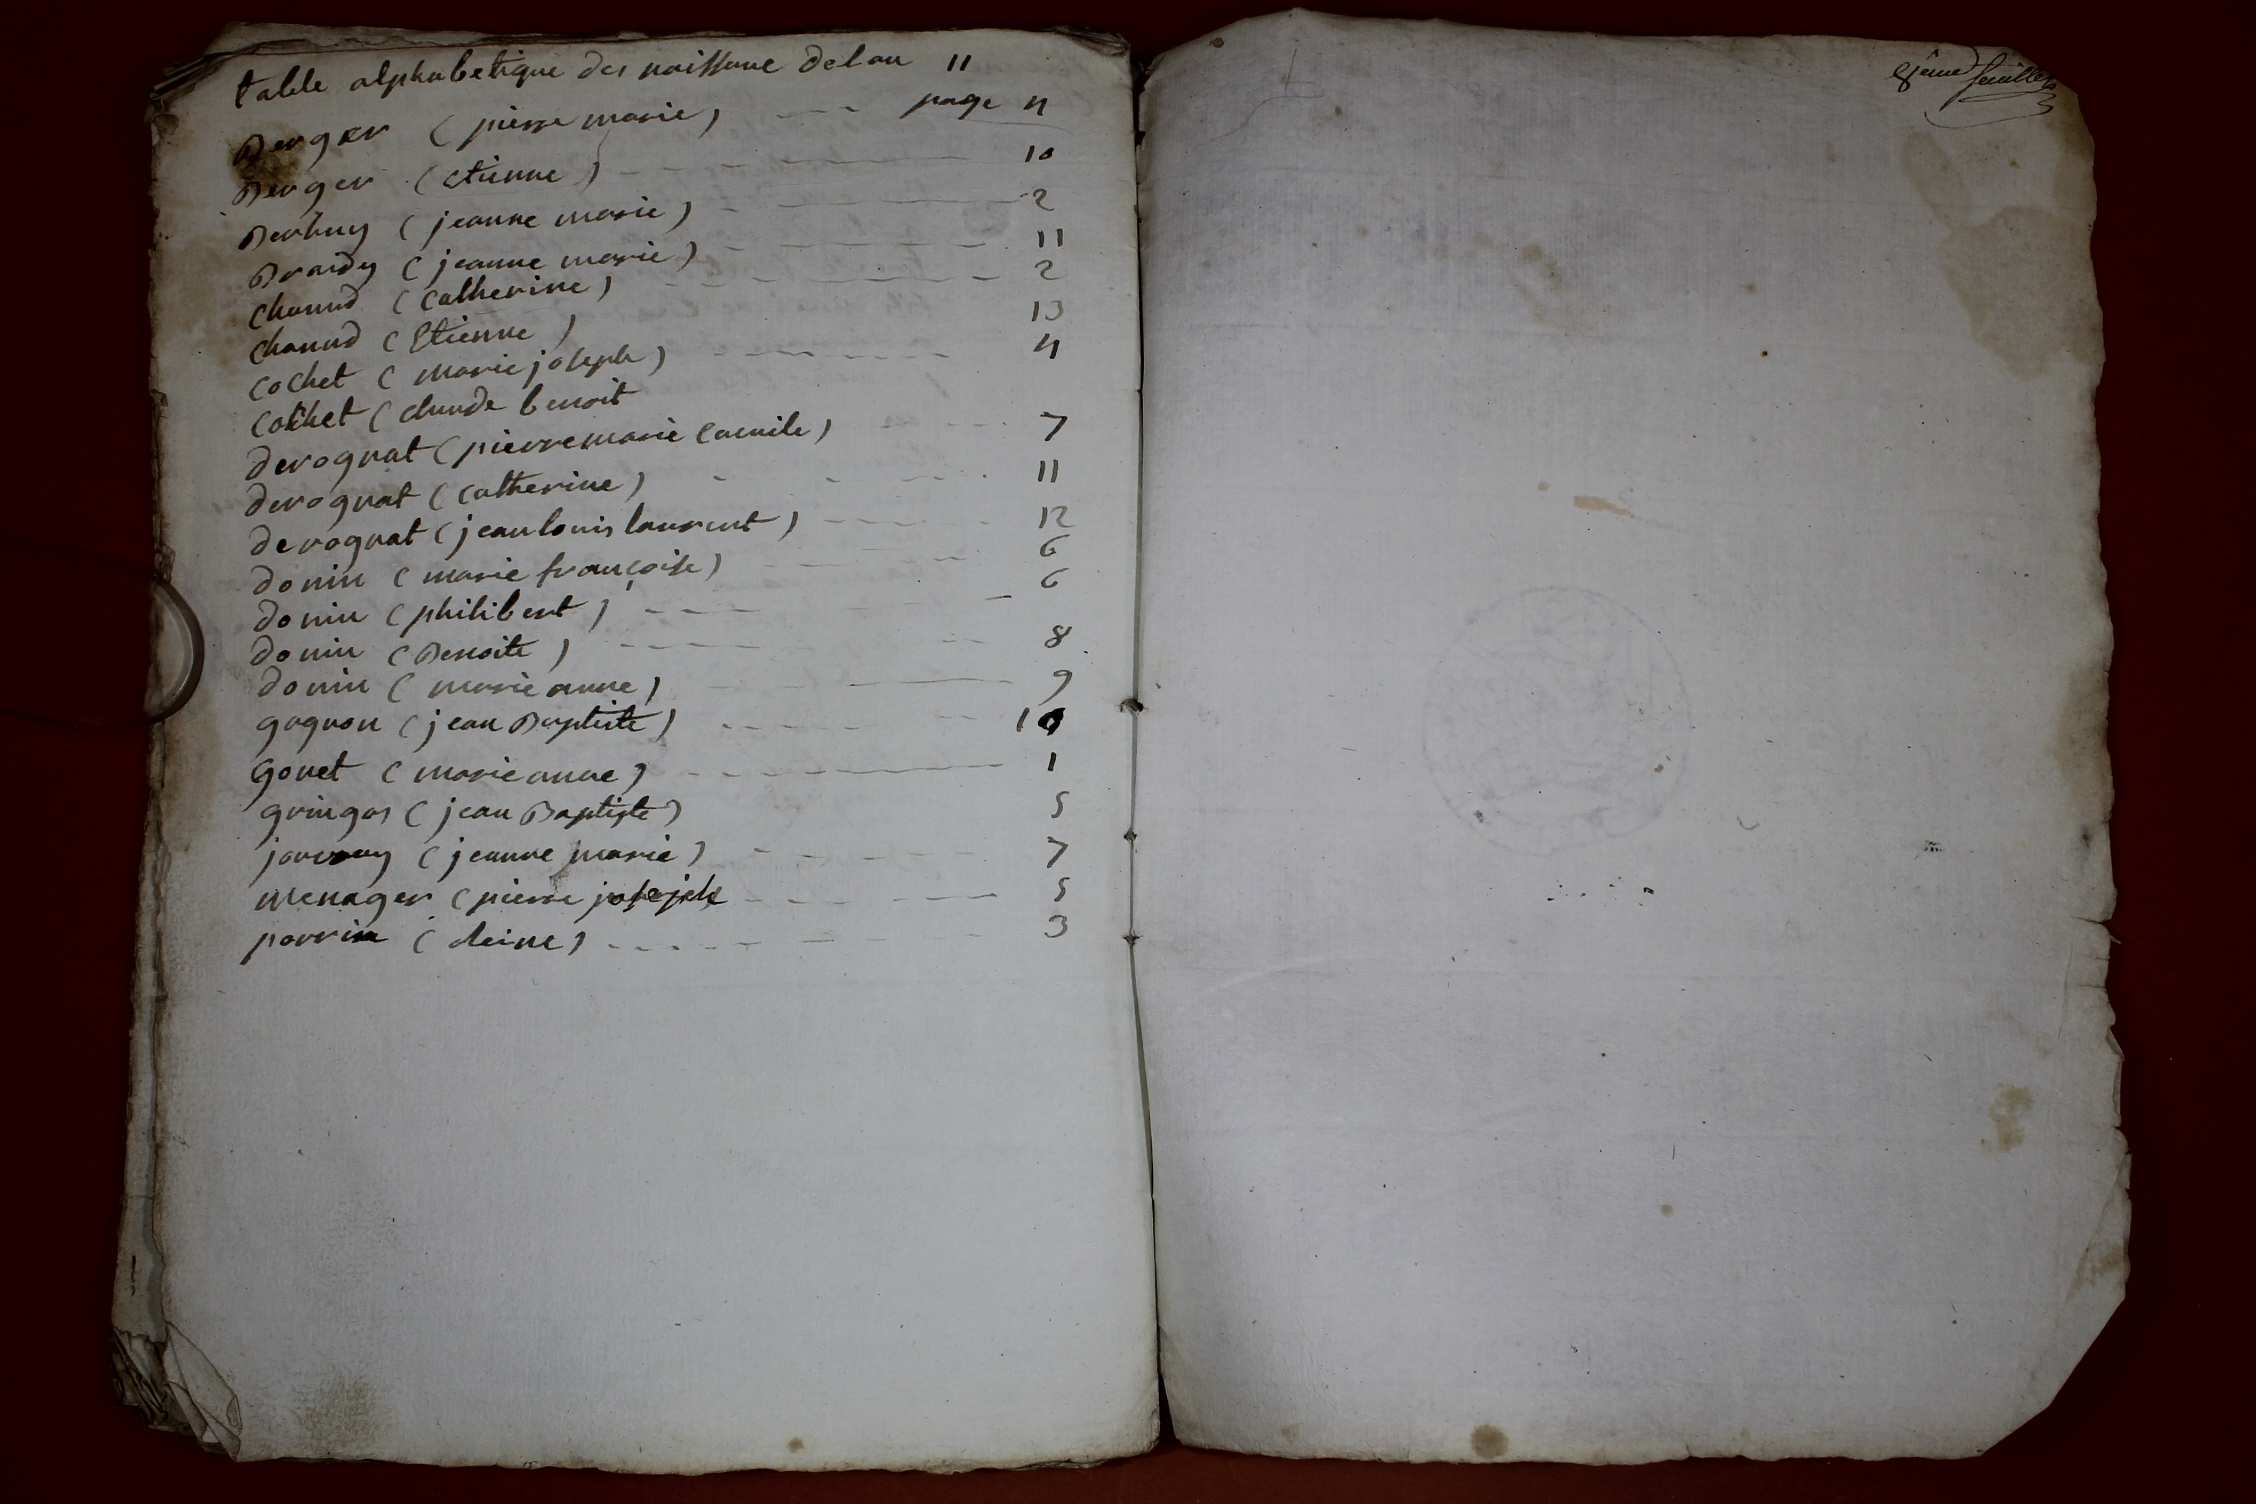 table alphabetique des naissane delan 11
Berger (pierre marie) page 4
Berger (etienne) 10
Berhuy (jeanne marie) 2
Braidy (jeanne marie) 11
chanud (Catherine) 2
chanud (Etienne) 13
cochet (marie joseph) 4
cochet (claude benoit
derognat (pierre marie Camile) 7
derognat (Catherine) 11
derognat (jean louis laurent) 12
donin (marie françoise) 6
donin (philibert) 6
donin (Benoite) 8
donin (marie anne) 9
gagnon (jean Baptiste) 10
Gonet (marie anne) 1
gringos (jean Baptiste) 5
(jeanne marie) 7
menager (pierre joseph 5
perrin (cleine) 3
8jême feuillet